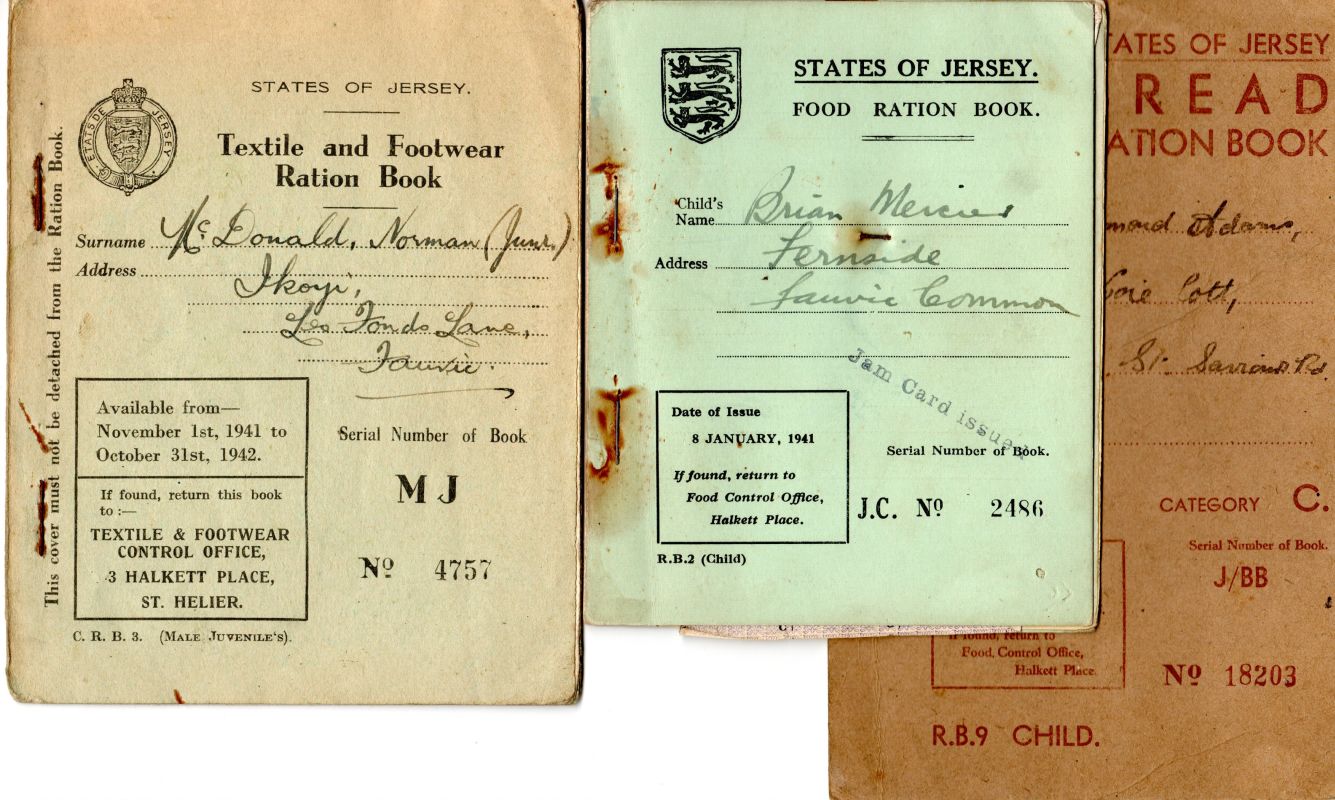 This cover must not be detached from the Ration Book.
ETATS DE JERSEY
STATES OF JERSEY.
Textile and Footwear
Ration Book
Surname Mc Donald, Norman (Junr.)
Address Ikoyi,
Les Fonds Lane,
Fauvic.
Available from—
November 1st, 1941 to
October 31st, 1942.
If found, return this book
to :—
TEXTILE & FOOTWEAR
CONTROL OFFICE,
3 HALKETT PLACE,
ST. HELIER.
Serial Number of Book
MJ
Nº 4757
C. R. B. 3. (MALE JUVENILE'S).
STATES OF JERSEY.
FOOD RATION BOOK.
Child's
Name Brian Mercier
Address Fernside
Fauvic Common
Jam Card issued
Date of Issue
8 JANUARY, 1941
If found, return to
Food Control Office,
Halkett Place.
Serial Number of Book.
J.C. Nº 2486
R.B.2 (Child)
TATES OF JERSEY
READ
ATION BOOK
mond Adams,
Cott,
St. Saviours Rd.
CATEGORY C.
Serial Number of Book.
J/BB
If found, return to
Food, Control Office,
Halkett Place.
Nº 18203
R.B.9 CHILD.